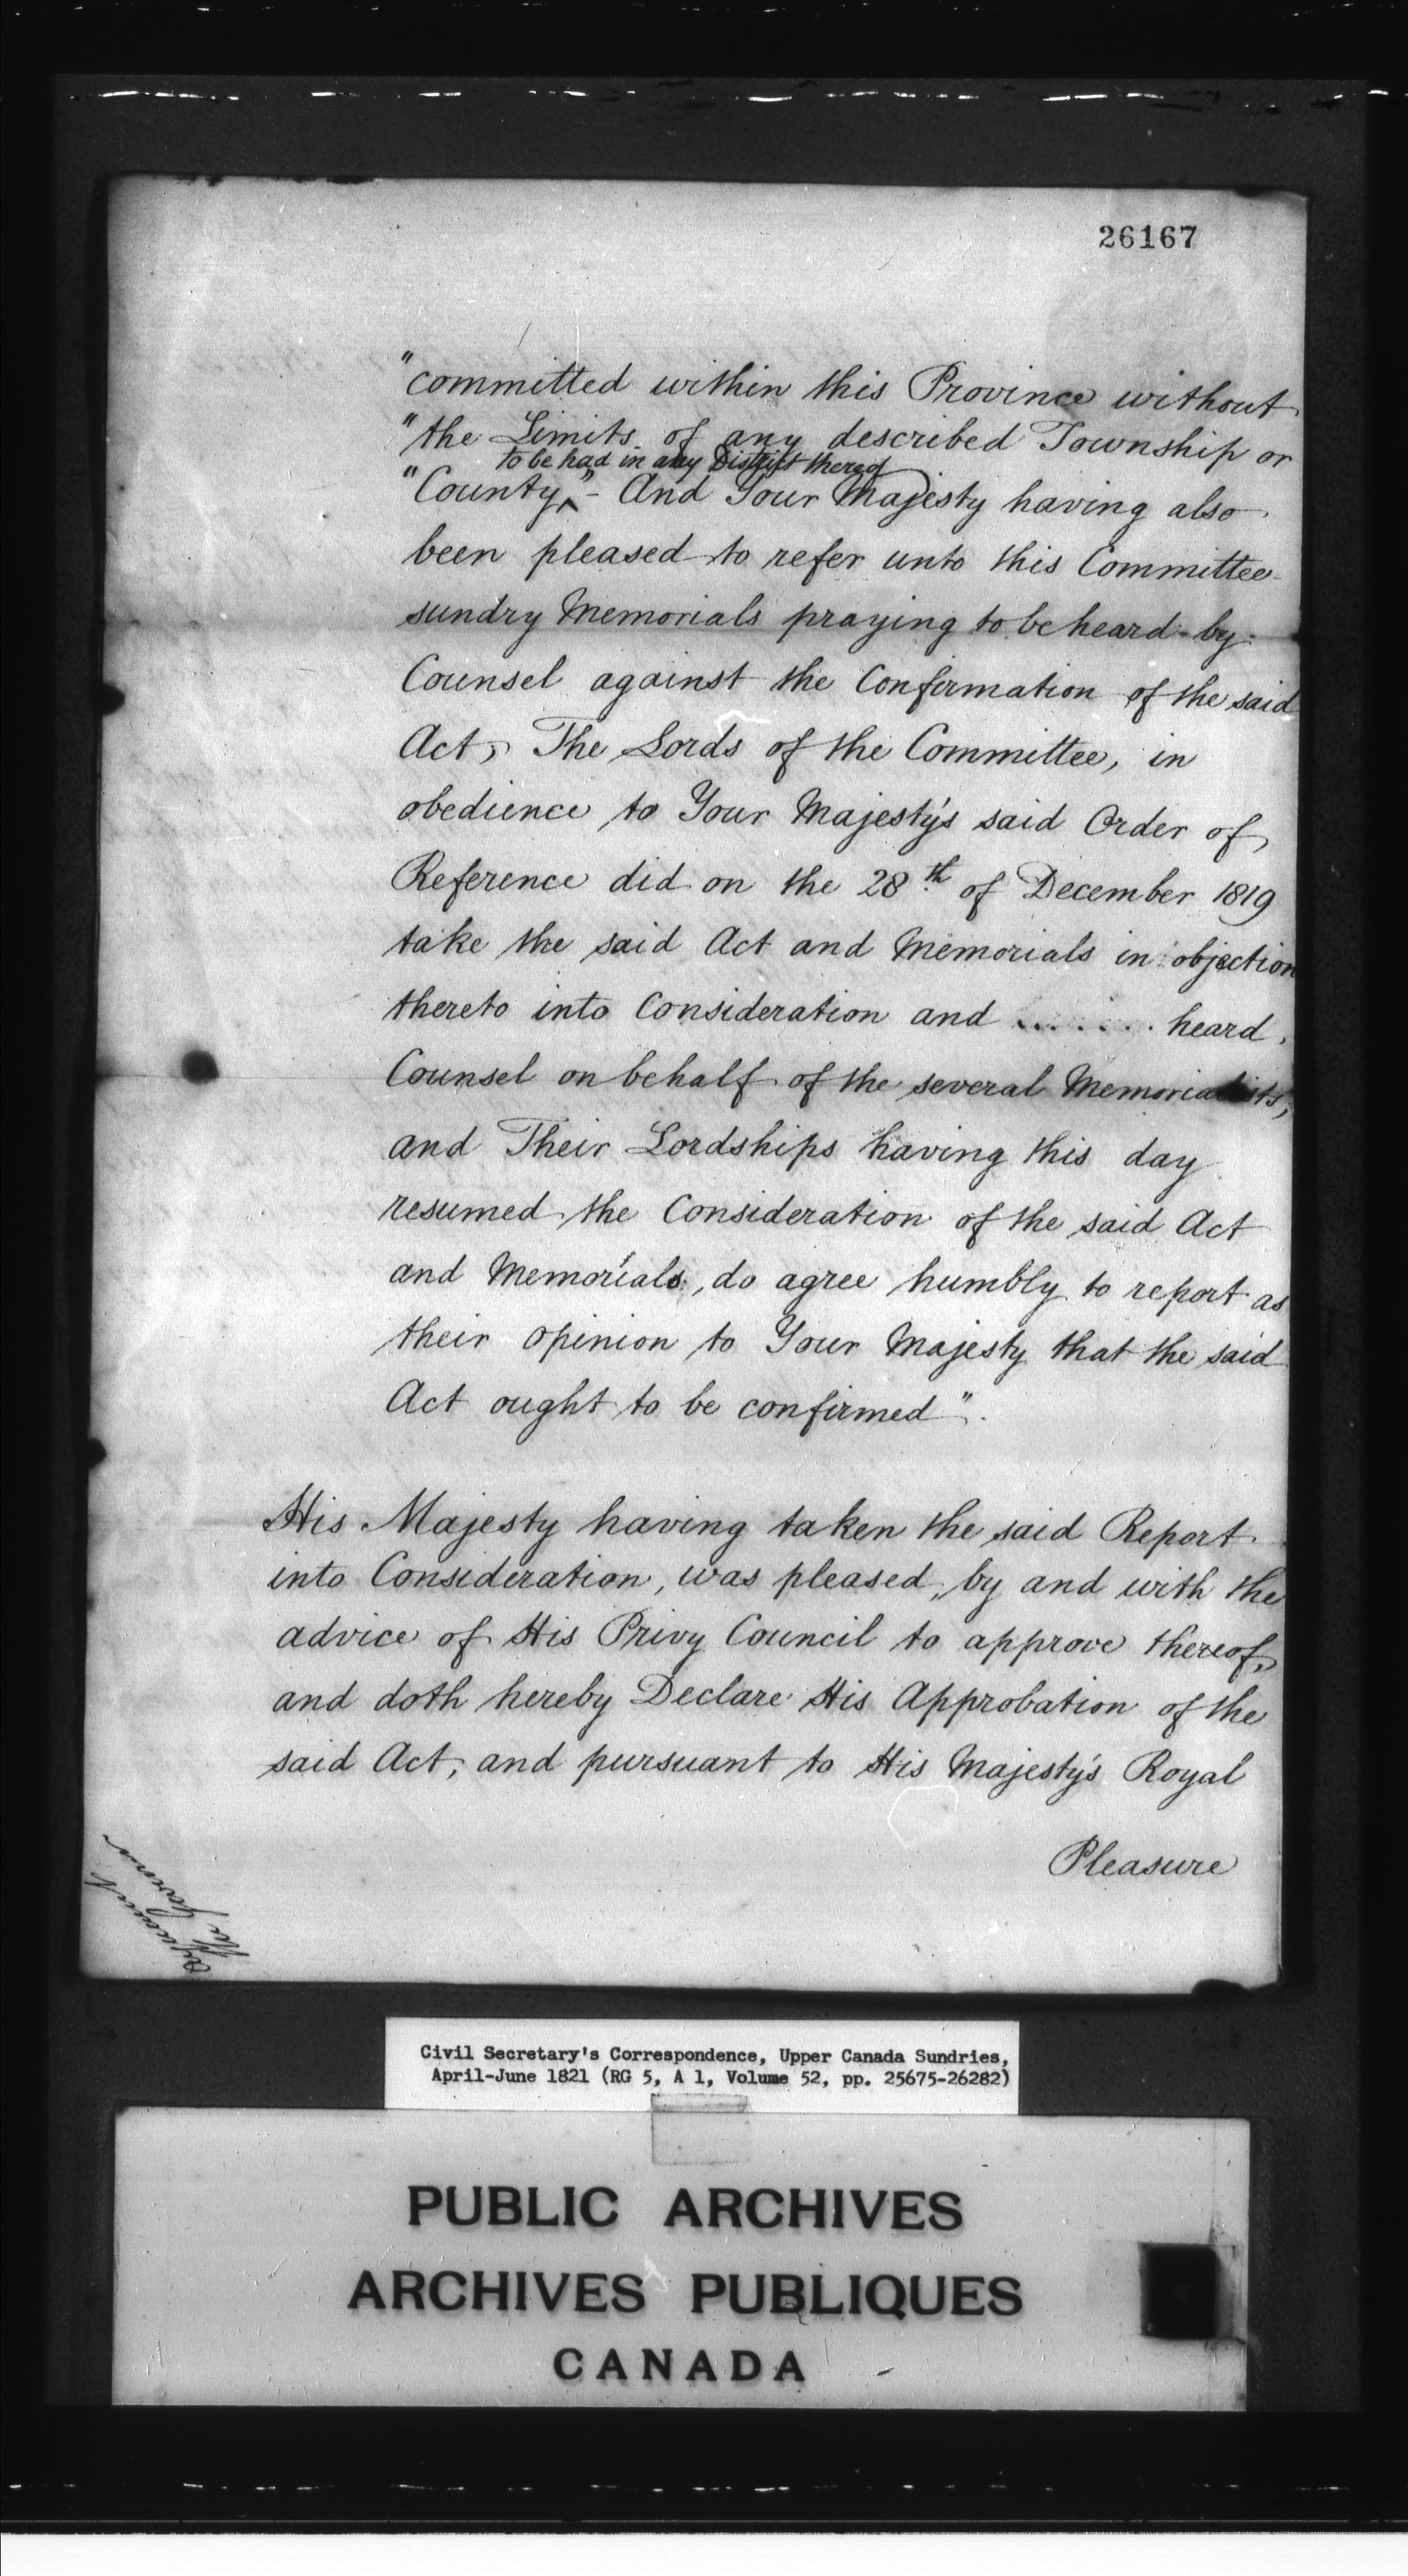 26167
"committed within this Province without
"the Limits of any described Township or
to be had in any District thereof
"County," - And Your Majesty having also
been pleased to refer unto this Committee
sundry Memorials praying to be heard by
Counsel against the Confirmation of the said
Act, The Lords of the Committee, in
obedience to Your Majesty's said Order of
Reference did on the 28th of December 1819
take the said Act and Memorials in objection
thereto into Consideration and ....... heard,
Counsel on behalf of the several Memorialists,
and Their Lordships having this day
resumed the Consideration of the said Act
and Memorials, do agree humbly to report as
their opinion to Your Majesty that the said
Act ought to be confirmed".
His Majesty having taken the said Report
into Consideration, was pleased, by and with the
advice of His Privy Council to approve thereof,
and doth hereby Declare His Approbation of the
said Act, and pursuant to His Majesty's Royal
Pleasure
Civil Secretary's Correspondence, Upper Canada Sundries,
April-June 1821 (RG 5, A 1, Volume 52, pp. 25675-26282)
PUBLIC ARCHIVES
ARCHIVES PUBLIQUES
CANADA